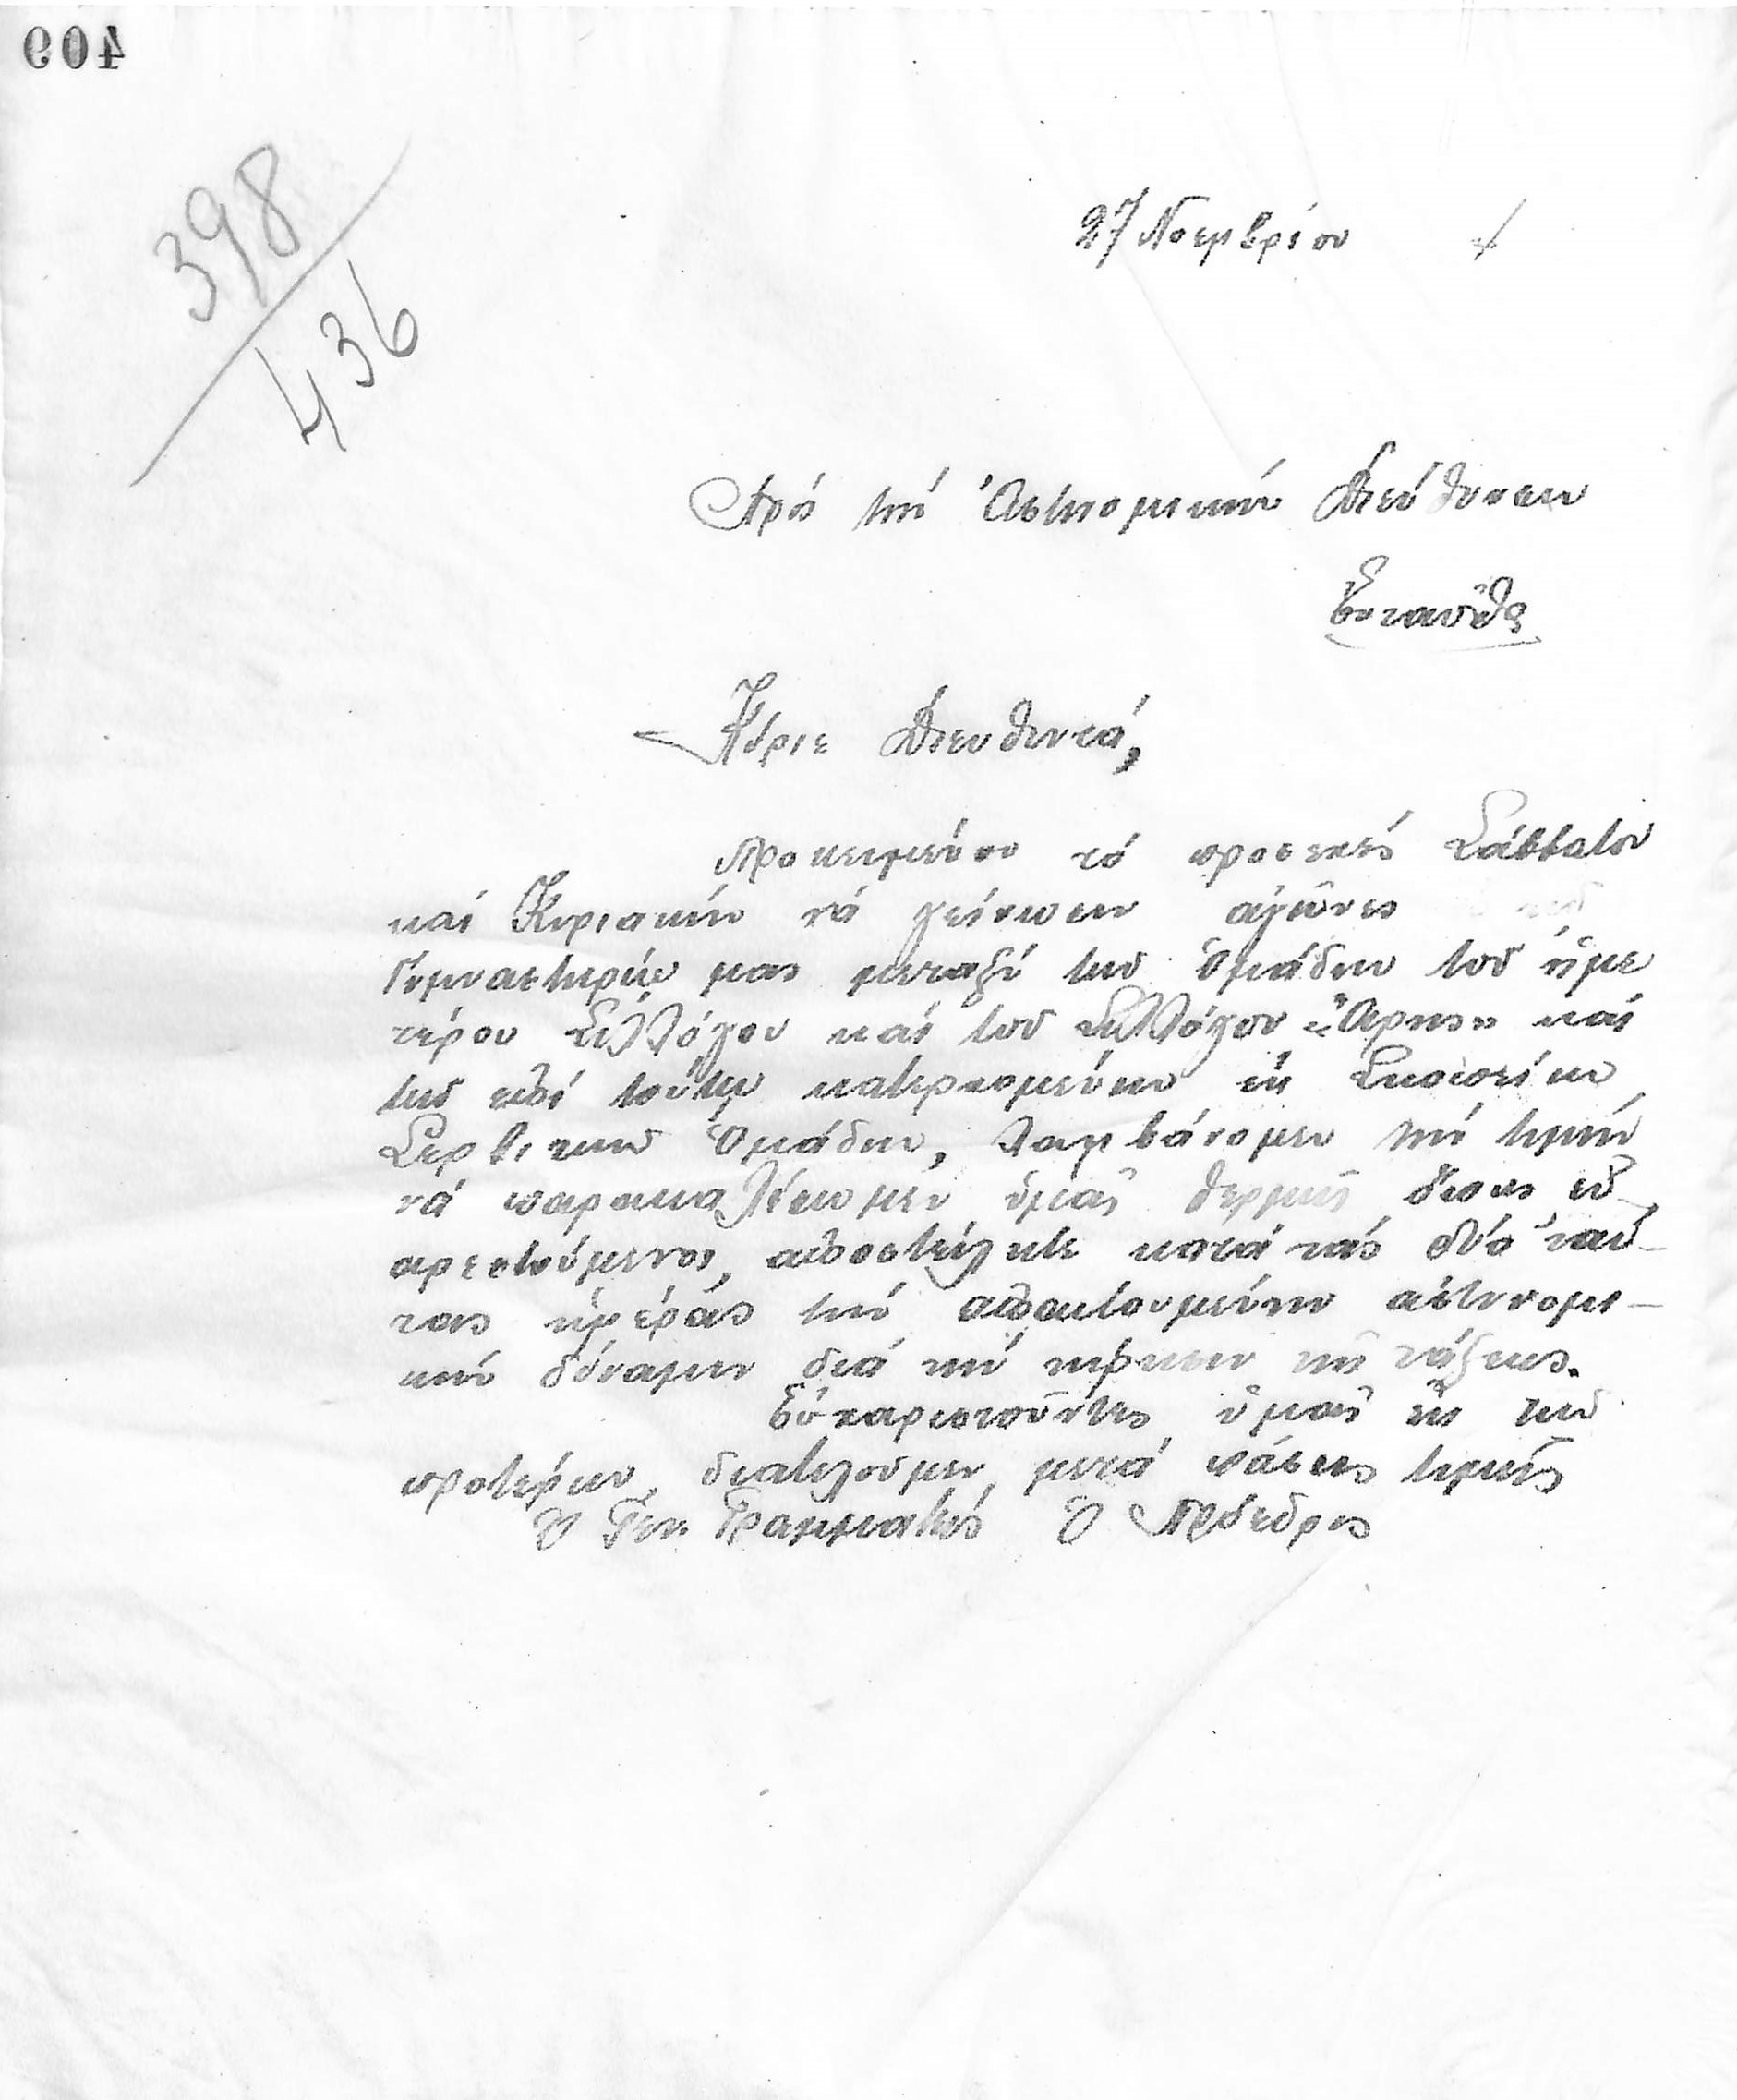 409
398
436
27 Νοεμβρίου
Πρὸς τὴν Ἀστυνομικὴν Διεύθυνσιν
Ἐνταῦθα
Κύριε Διευθυντά,
Προκειμένου τὸ προσεχὲς Σάββατον
καὶ Κυριακὴν νὰ γείνωσιν ἀγῶνες
Γυμναστηρίῳ μας μεταξὺ τῶν Ὁμάδων τοῦ ἡμε
τέρου Συλλόγου καὶ τοῦ Συλλόγου «Ἄρης» καὶ
τῶν ἐπὶ τούτῳ κατερχομένων ἐκ Σκοπείων
Σερβικῶν Ὁμάδων, λαμβάνομεν τὴν τιμὴν
νὰ παρακαλέσωμεν ὑμᾶς θερμῶς ὅπως εὐ-
αρεστούμενος, ἀποστείλητε κατὰ τὰς δύο ταύ-
τας ἡμέρας τὴν ἀπαιτουμένην ἀστυνομι-
κὴν δύναμιν διὰ τὴν τήρησιν τῆς τάξεως.
Εὐχαριστοῦντες ὑμᾶς ἐκ τῶν
προτέρων, διατελοῦμεν μετὰ πάσης τιμῆς
Ὁ Γεν. Γραμματεὺς Ὁ Πρόεδρος